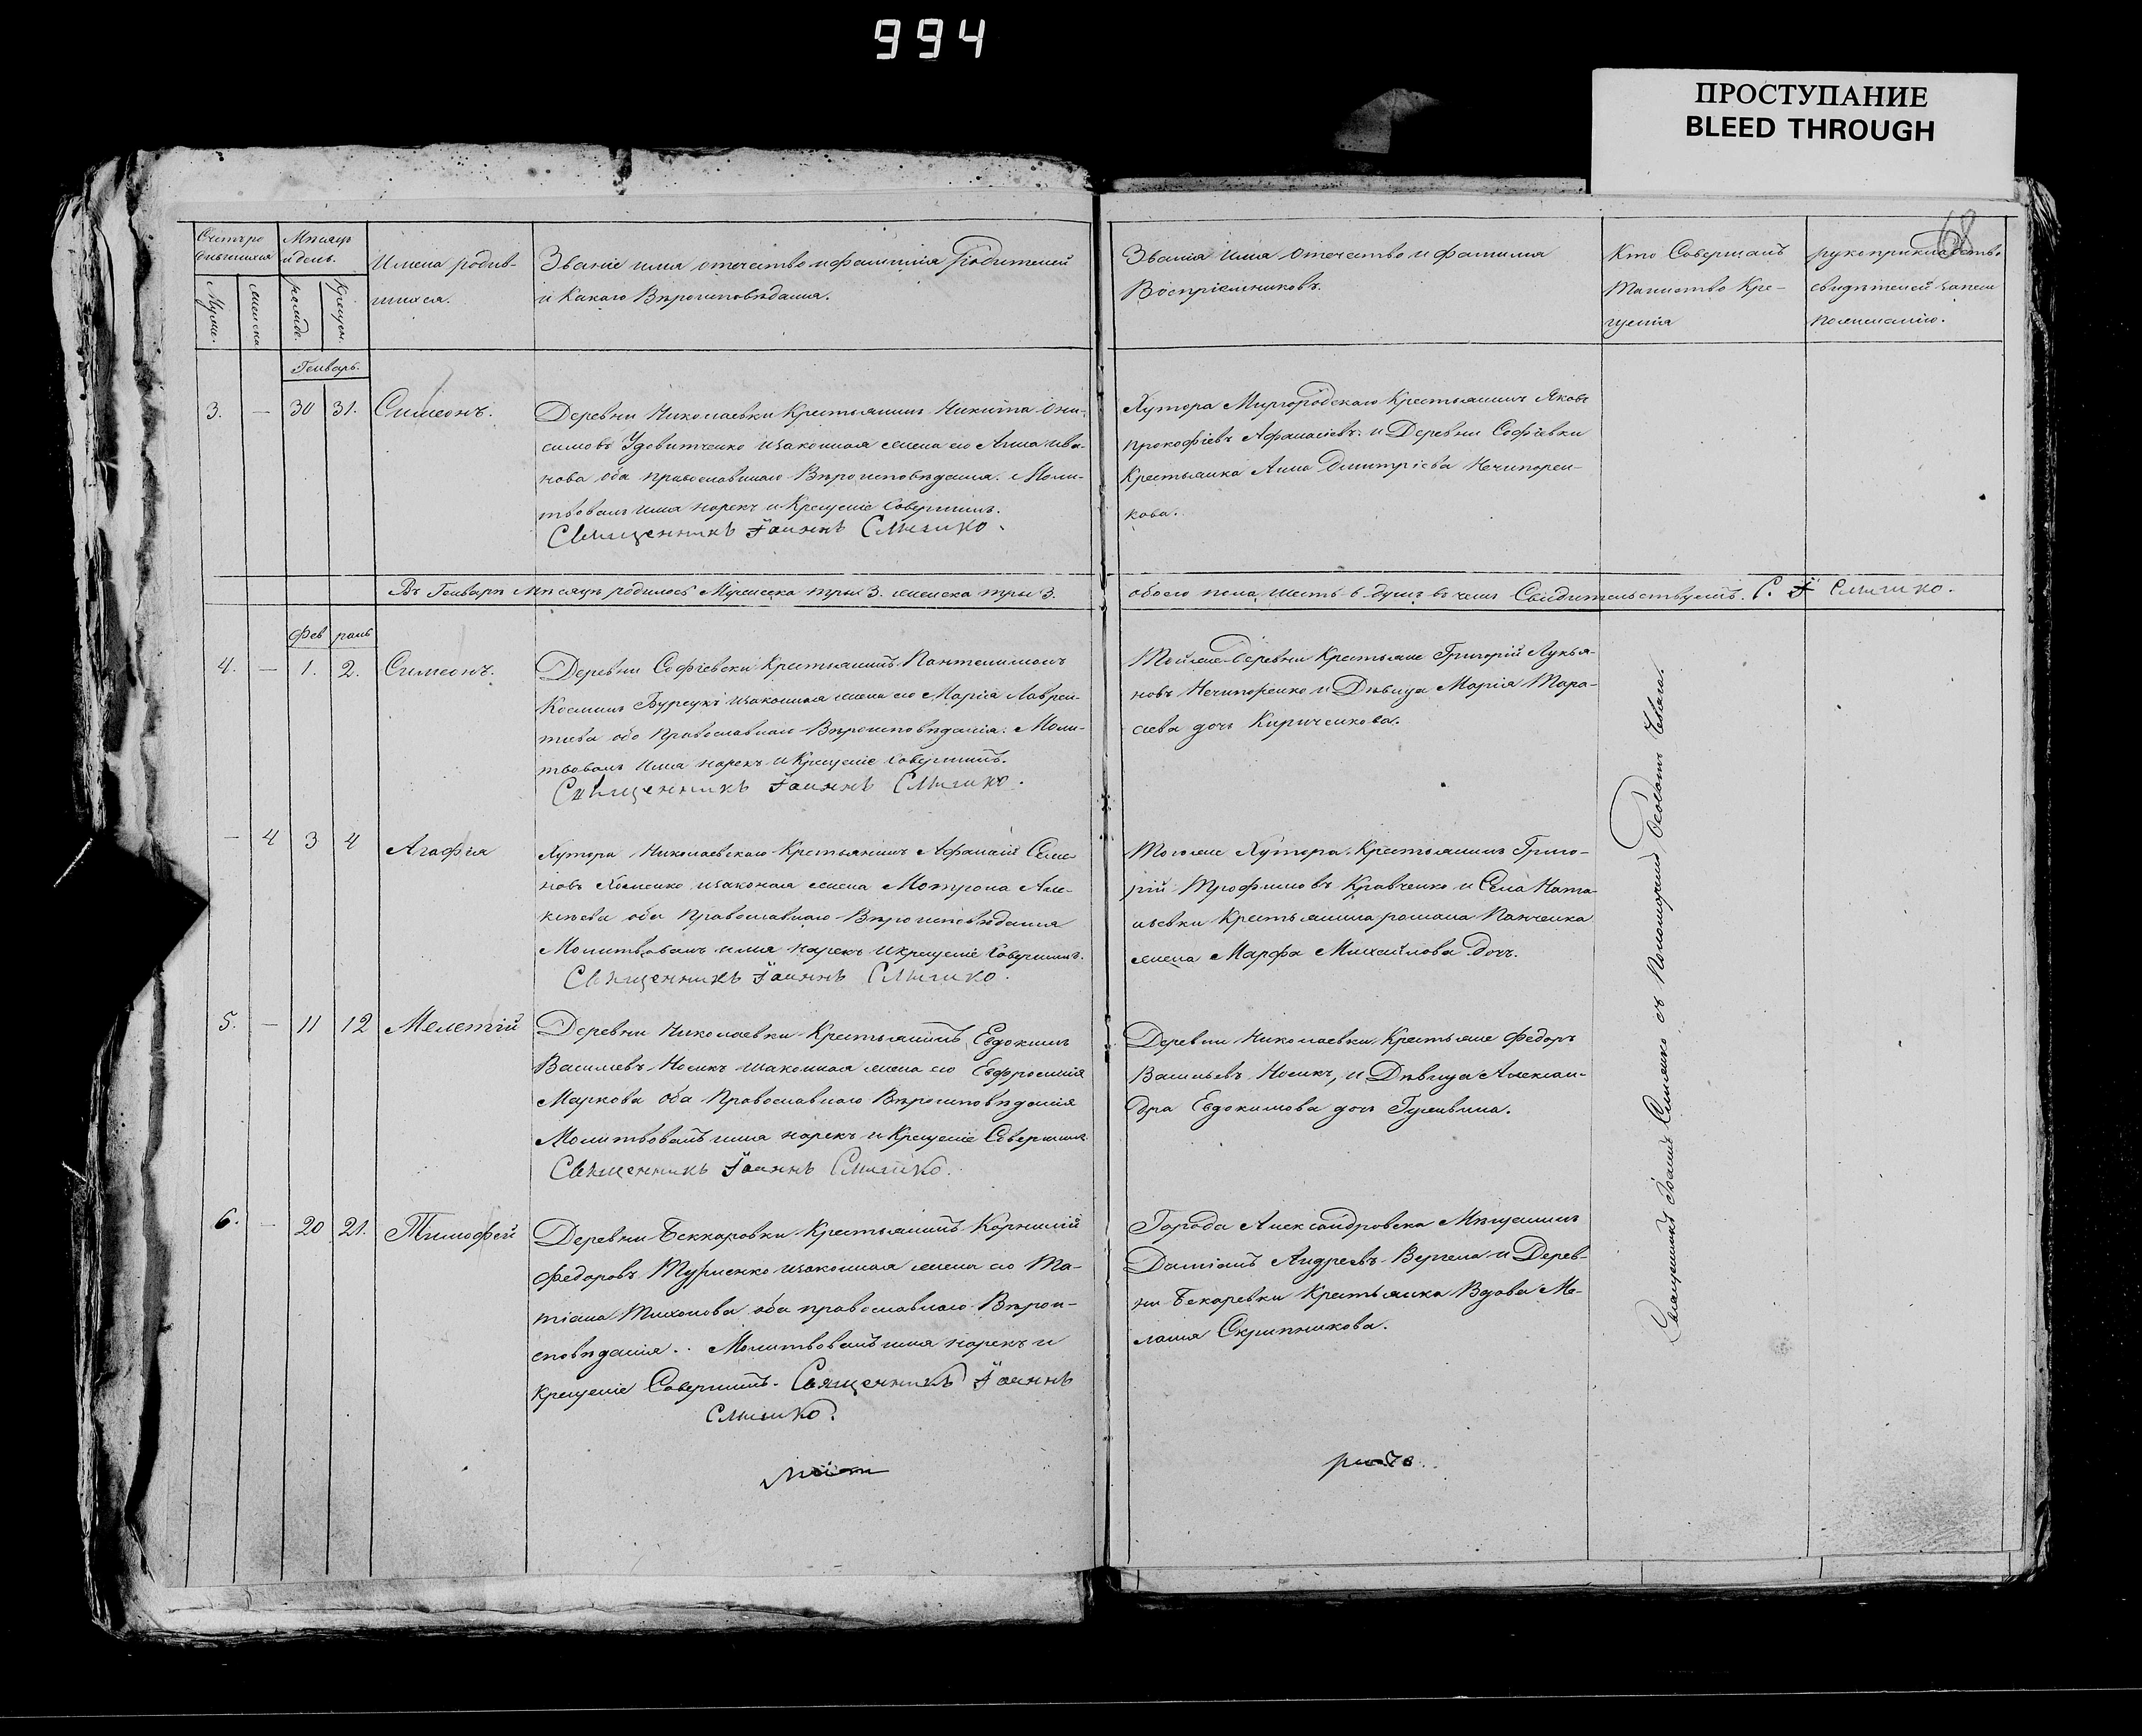 994
ПРОСТУПАНИЕ
BLEED THROUGH
68
Счетъ ро
дившихся
Мѣсяцъ
и день.
Имена родив-
шихся.
Званіе имя отечество и фамилія Родителей
и Какаго Вѣроисповѣданія.
Муже.
женска
рожде.
Крещен.
Званія имя отечество и фамилия
Воспріемниковъ.
Кто Совершалъ
Таинство Кре-
щенія
рукоприкладство
свидѣтелей записи
пожеланію.
Генварь.
3. — 30 31. Симеонъ.
Деревни Николаевки Крестьянинъ Никита Они-
симовъ Удовитченко изаконная жена его Анна ива-
нова оба православнаго Вѣроисповѣдания. Моли-
твовалъ имя нарекъ и Крещеніе Совершилъ.
Священникъ Іоаннъ
Хутора Миргородскаго Крестьянинъ Яковъ
прокофіевъ Афанасіевъ. и Деревни Софіевки
Крестьянка Анна Дмитріева Нечипорен-
кова.
Въ Генварѣ мѣсяцѣ родилось Мужеска три 3. женска три 3.
обоего пола шесть 6. душъ въ чемъ Свидительствуетъ. С. І.
Фев раль
4. — 1. 2. Симеонъ.
Деревни Софіевски Крестьянинъ Пантелимонъ
Косминъ Бурсукъ изаконная жена его Марія Лаврен-
тиева оба Православнаго Вѣроисповѣданія. Моли-
твовалъ Имя нарекъ и Крещеніе Совершилъ.
Священникъ Іоаннъ
Тойже Деревни Крестьяне Григорій Лукья-
новъ Нечипоренко и Дѣвица Марія Тара-
сіева дочь Кириченкова.
— 4 3 4 Агафія
Хутора Николаевскаго Крестьянинъ Афанасій Семе-
новъ Хоменко изаконая жена Мотрона Але-
ксѣева оба Православнаго Вѣроисповѣдания
Молитвовалъ имя нарекъ икрещеніе Совершилъ.
Священникъ Іоаннъ
Тогоже Хутора Крестьянинъ Григо-
рій Трофимовъ Кравченко и Села Ната-
льевки Крестьянина романа Панченка
жена Марфа Михайлова Дочь.
5. — 11 12 Мелетій
Деревни Николаевки Крестьянинъ Евдокимъ
Василіевъ Носикъ изаконная жена его Евфросинія
Маркова оба Православнаго Вѣроисповѣданія
Молитвовалъ имя нарекъ и Крещеніе Совершилъ
Священникъ Іоаннъ
Деревни Николаевки Крестьяне Федоръ
Васильевъ Носикъ, и Дѣвица Алексан-
дра Евдокимова дочь
6. — 20 21. Тимофей
Деревни Беккаровки Крестьянинъ Корнилій
Федоровъ изаконная жена его Та-
тіана Тихонова оба православнаго Вѣрои-
сповѣдания. Молитвовалъ имя нарекъ и
Крещеніе Совершилъ. Священникъ Іоаннъ
Города Александровска Мѣщанинъ
Даміанъ Андреевъ и Дерев-
ни Бекаревки Крестьянка Вдова Ме-
лания Скрипникова.
Священникъ Іоаннъ съ Пономаремъ